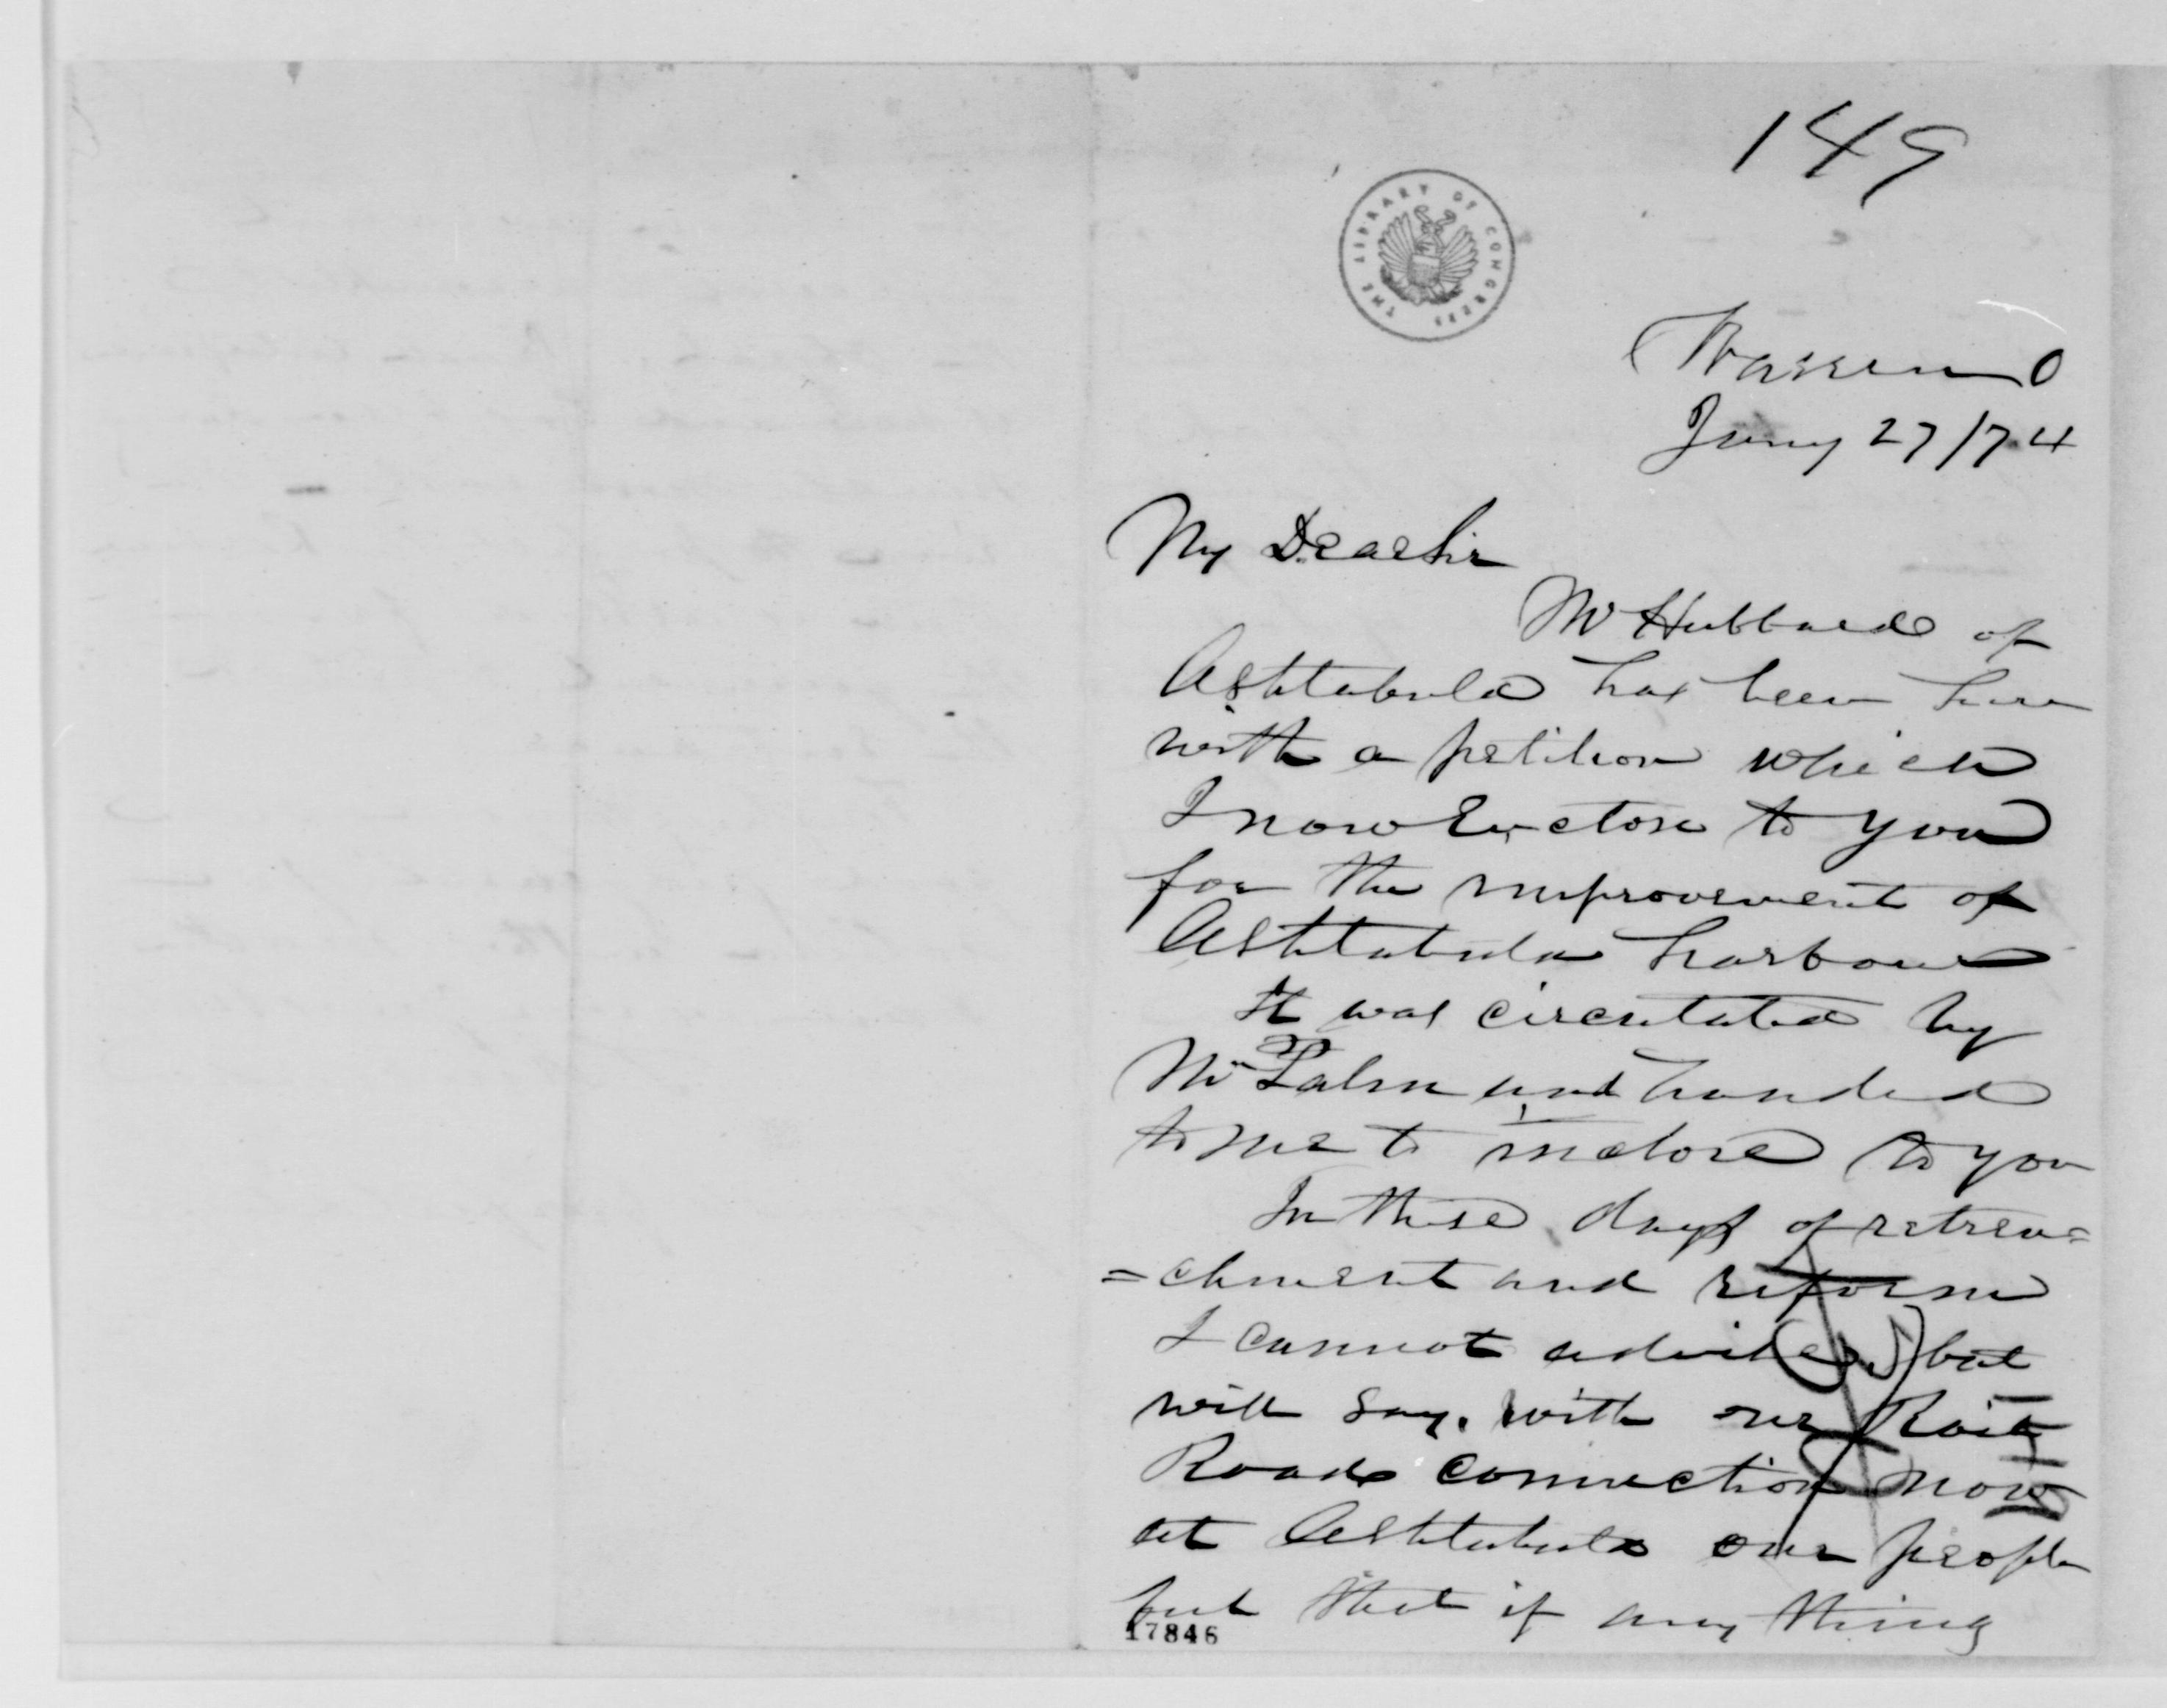 149
THE LIBRARY OF CONGRESS
Warren O
Jany 27/74
My Dear Sir
Mr Hubbard of
Ashtabula has been here
with a petition which
I now Enclose to you
for the improvement of
Ashtabula harbour
It was circulated by
Mr and handed
to me to inclose to you
In these days of retren=
=chment and reform
I cannot advise but
will say. with our Rail
Road connection now
at Ashtabula our people
feel that if any thing
17846